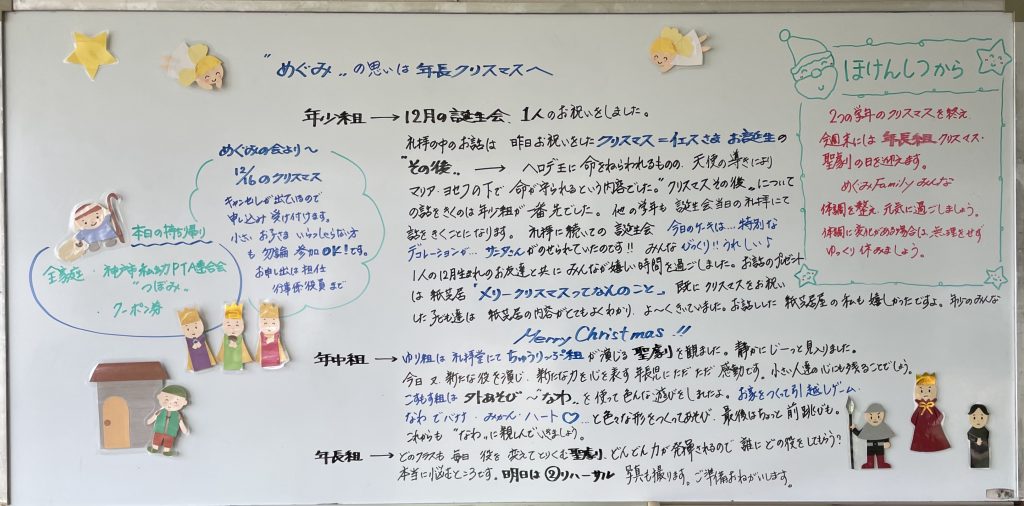 "めぐみ"の思いは 年長クリスマスへ
年少組 → 12月の誕生会 1人のお祝いをしました。
礼拝の中のお話は 昨日お祝いをした クリスマス=イエスさま お誕生の
"その後" → ヘロデ王に命をねらわれるものの 天使の導きにより
マリア・ヨセフの下で命が守られるという内容でした。"クリスマスその後"について
の話をきくのは年少組が一番先でした。他の学年も 誕生会当日の礼拝にて
話をきくことになります。礼拝に続いての誕生会 今日のケーキは…特別な
デコレーションが… サンタさんがのせられていたのです!! みんなびっくり!!うれしい♪
1人の12月生まれのお友達と共に みんなが嬉しい時間を過ごしました。お話のプレゼント
は 紙芝居 "メリークリスマスってなんのこと" 既にクリスマスをお祝い
した子ども達は 紙芝居の内容がとてもよくわかり よ〜くきいていました。お話しした 紙芝居屋の私も嬉しかったですよ。年少のみんな
Merry Christmas!!
年中組 → ゆり組は 礼拝堂にて ちゅうりっぷ組が演じる 聖劇を観ました。静かにじーっと見入りました。
今日又 新たな役を演じ 新たな力を心を表す年長児に ただただ 感動です。小さい人達の心にも残ることでしょう。
こすもす組は 外あそび 〜"なわ"を使って色んな遊びをしましたよ。お家をつくって引越しゲーム
なわでバナナ みかん ハート♡…と色々な形をつくってあそび 最後はちょっと前跳びも。
これからも "なわ"に親しんでいきましょう。
年長組 → どのクラスも 毎日 役を変えてとりくむ 聖劇 どんどん力が発揮されるので 誰にどの役をしてもらう?
本当に悩むところです。明日は ②リハーサル 写真も撮ります。ご準備おねがいします。
めぐみの会より〜
12/16のクリスマス
キャンセルが出ているので
申し込み受け付けます。
小さいお子さまいらっしゃる方
も勿論 参加OK!です。
お申し出は 担任
行事係役員まで
本日の持ち帰り
全家庭・神戸市私幼PTA連合会
"つぼみ"
・クーポン券
ほけんしつから
2つの学年のクリスマスを終え
今週末には 年長組クリスマス・
聖劇の日を迎えます。
めぐみFamilyみんな
体調を整え 元気に過ごしましょう。
体調に変化がある場合は 無理をせず
ゆっくり休みましょう。